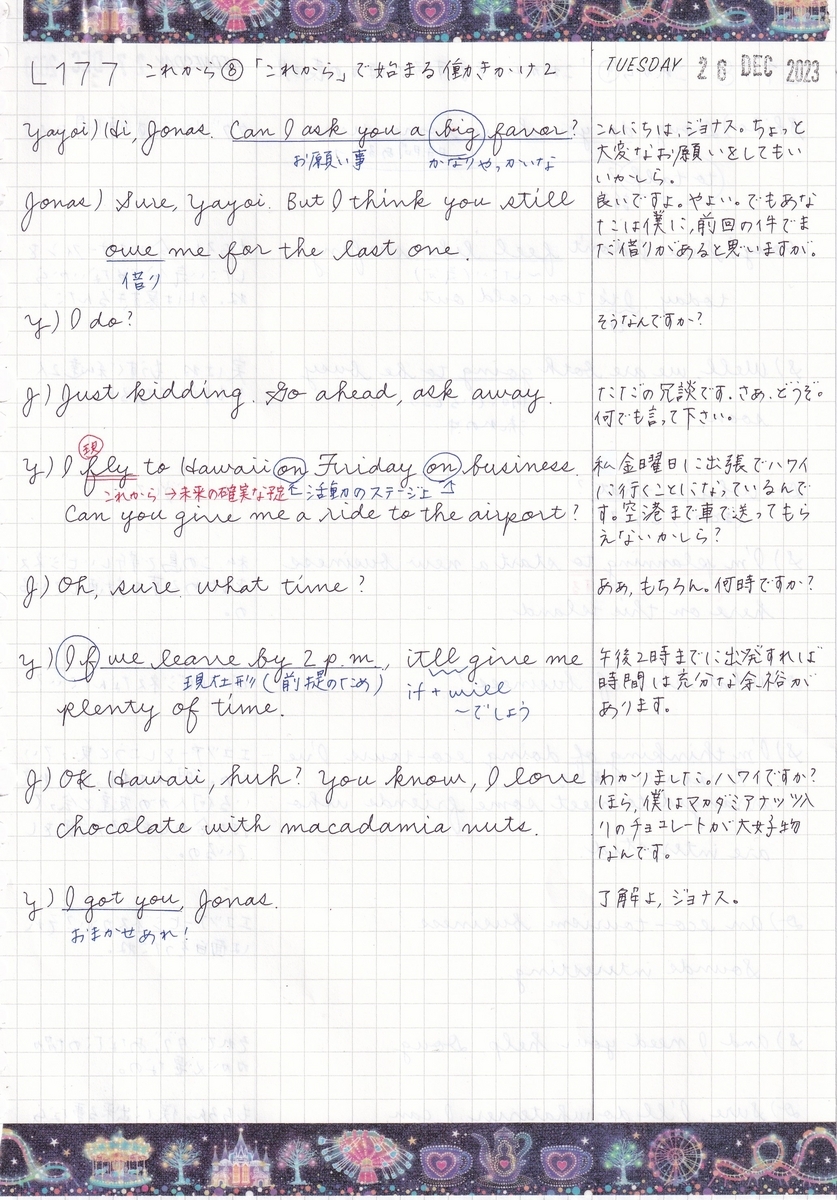 L177 これから⑧「これから」で始まる働きかけ2 TUESDAY 26 DEC 2023
Yayoi) Hi, Jonas. Can I ask you a big favor?
お願い事 かなりやっかいな
こんにちは、ジョナス。ちょっと
大変なお願いをしてもい
いかしら。
Jonas) Sure, Yayoi. But I think you still
owe me for the last one.
借り
良いですよ。やよい。でもあな
たは僕に、前回の件でま
だ借りがあると思いますが。
Y) I do?
そうなんですか?
J) Just kidding. Go ahead, ask away.
ただの冗談です。さあ、どうぞ。
何でも言って下さい。
現
Y) I fly to Hawaii on Friday on business.
これから→未来の確実な予定 ←活動のステージ上
Can you give me a ride to the airport?
私金曜日に出張でハワイ
に行くことになっているんで
す。空港まで車で送ってもら
えないかしら?
J) Oh, sure. What time?
ああ、もちろん。何時ですか?
Y) If we leave by 2 p.m., it'll give me
現在形(前提のため) if + will
〜でしょう
plenty of time.
午後2時までに出発すれば
時間は充分な余裕が
あります。
J) OK. Hawaii, huh? You know, I love
chocolate with macadamia nuts.
わかりました。ハワイですか?
ほら、僕はマカダミアナッツ入
りのチョコレートが大好物
なんです。
Y) I got you, Jonas.
おまかせあれ!
了解よ、ジョナス。